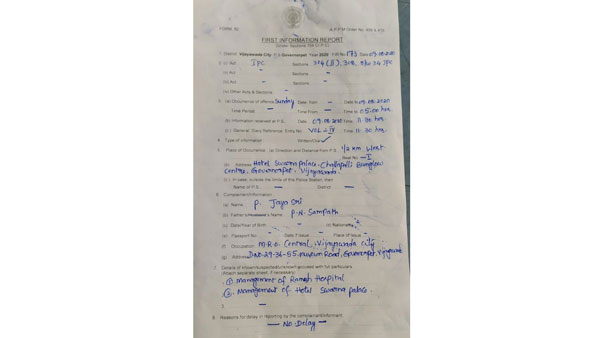 FORM
A.P.P.M Order No.
FIRST INFORMATION REPORT
(Under Section 154 Cr.P.C)
1. District Vijayawada City P.S Governorpet Year 2020 FIR No 173 Date 09.08.2020
2. (i) Act IPC Sections 304(II), 308, r/w 34 IPC
(ii) Act – Sections –
(iii) Act – Sections –
(iv) Other Acts & Sections –
3. (a) Occurrence of offence Sunday Date from – Date to 09.08.2020
Time Period – Time From – Time to 05:00 hrs
(b) Information received at P.S. Date 09.08.2020 Time 11:30 hrs
(c) General Diary Reference Entry No. Time 11:30 hrs
4. Type of Information Written
5. Place of Occurrence (a) Direction and Distance from P.S 1/2 km West
Beat No. – I
(b) Address Hotel Swarna palace, Challapalli Bunglow
Centre, Governorpet, Vijayawada.
(c) In case, outside the limits of this Police Station, then
Name of P.S. – District –
6. Complainant/Information
(a) Name P. Jaya Sri
(b) Father's/Husband's Name P.N. Sampath
(c) Date/Year of Birth – (d) Nationality
(e) Passport No. – Date of Issue – Place of Issue –
(f) Occupation M.R.O. Central, Vijayawada City
(g) Address D.No. 29-36-55, museum Road, Governorpet, Vijayawada
7. Details of known/suspected/unknown accused with full particulars
(Attach separate sheet, if necessary)
① management of Ramesh Hospital
② Management of Hotel Swarna palace.
3. –
8. Reasons for delay in reporting by the complainant/informant
– No Delay –